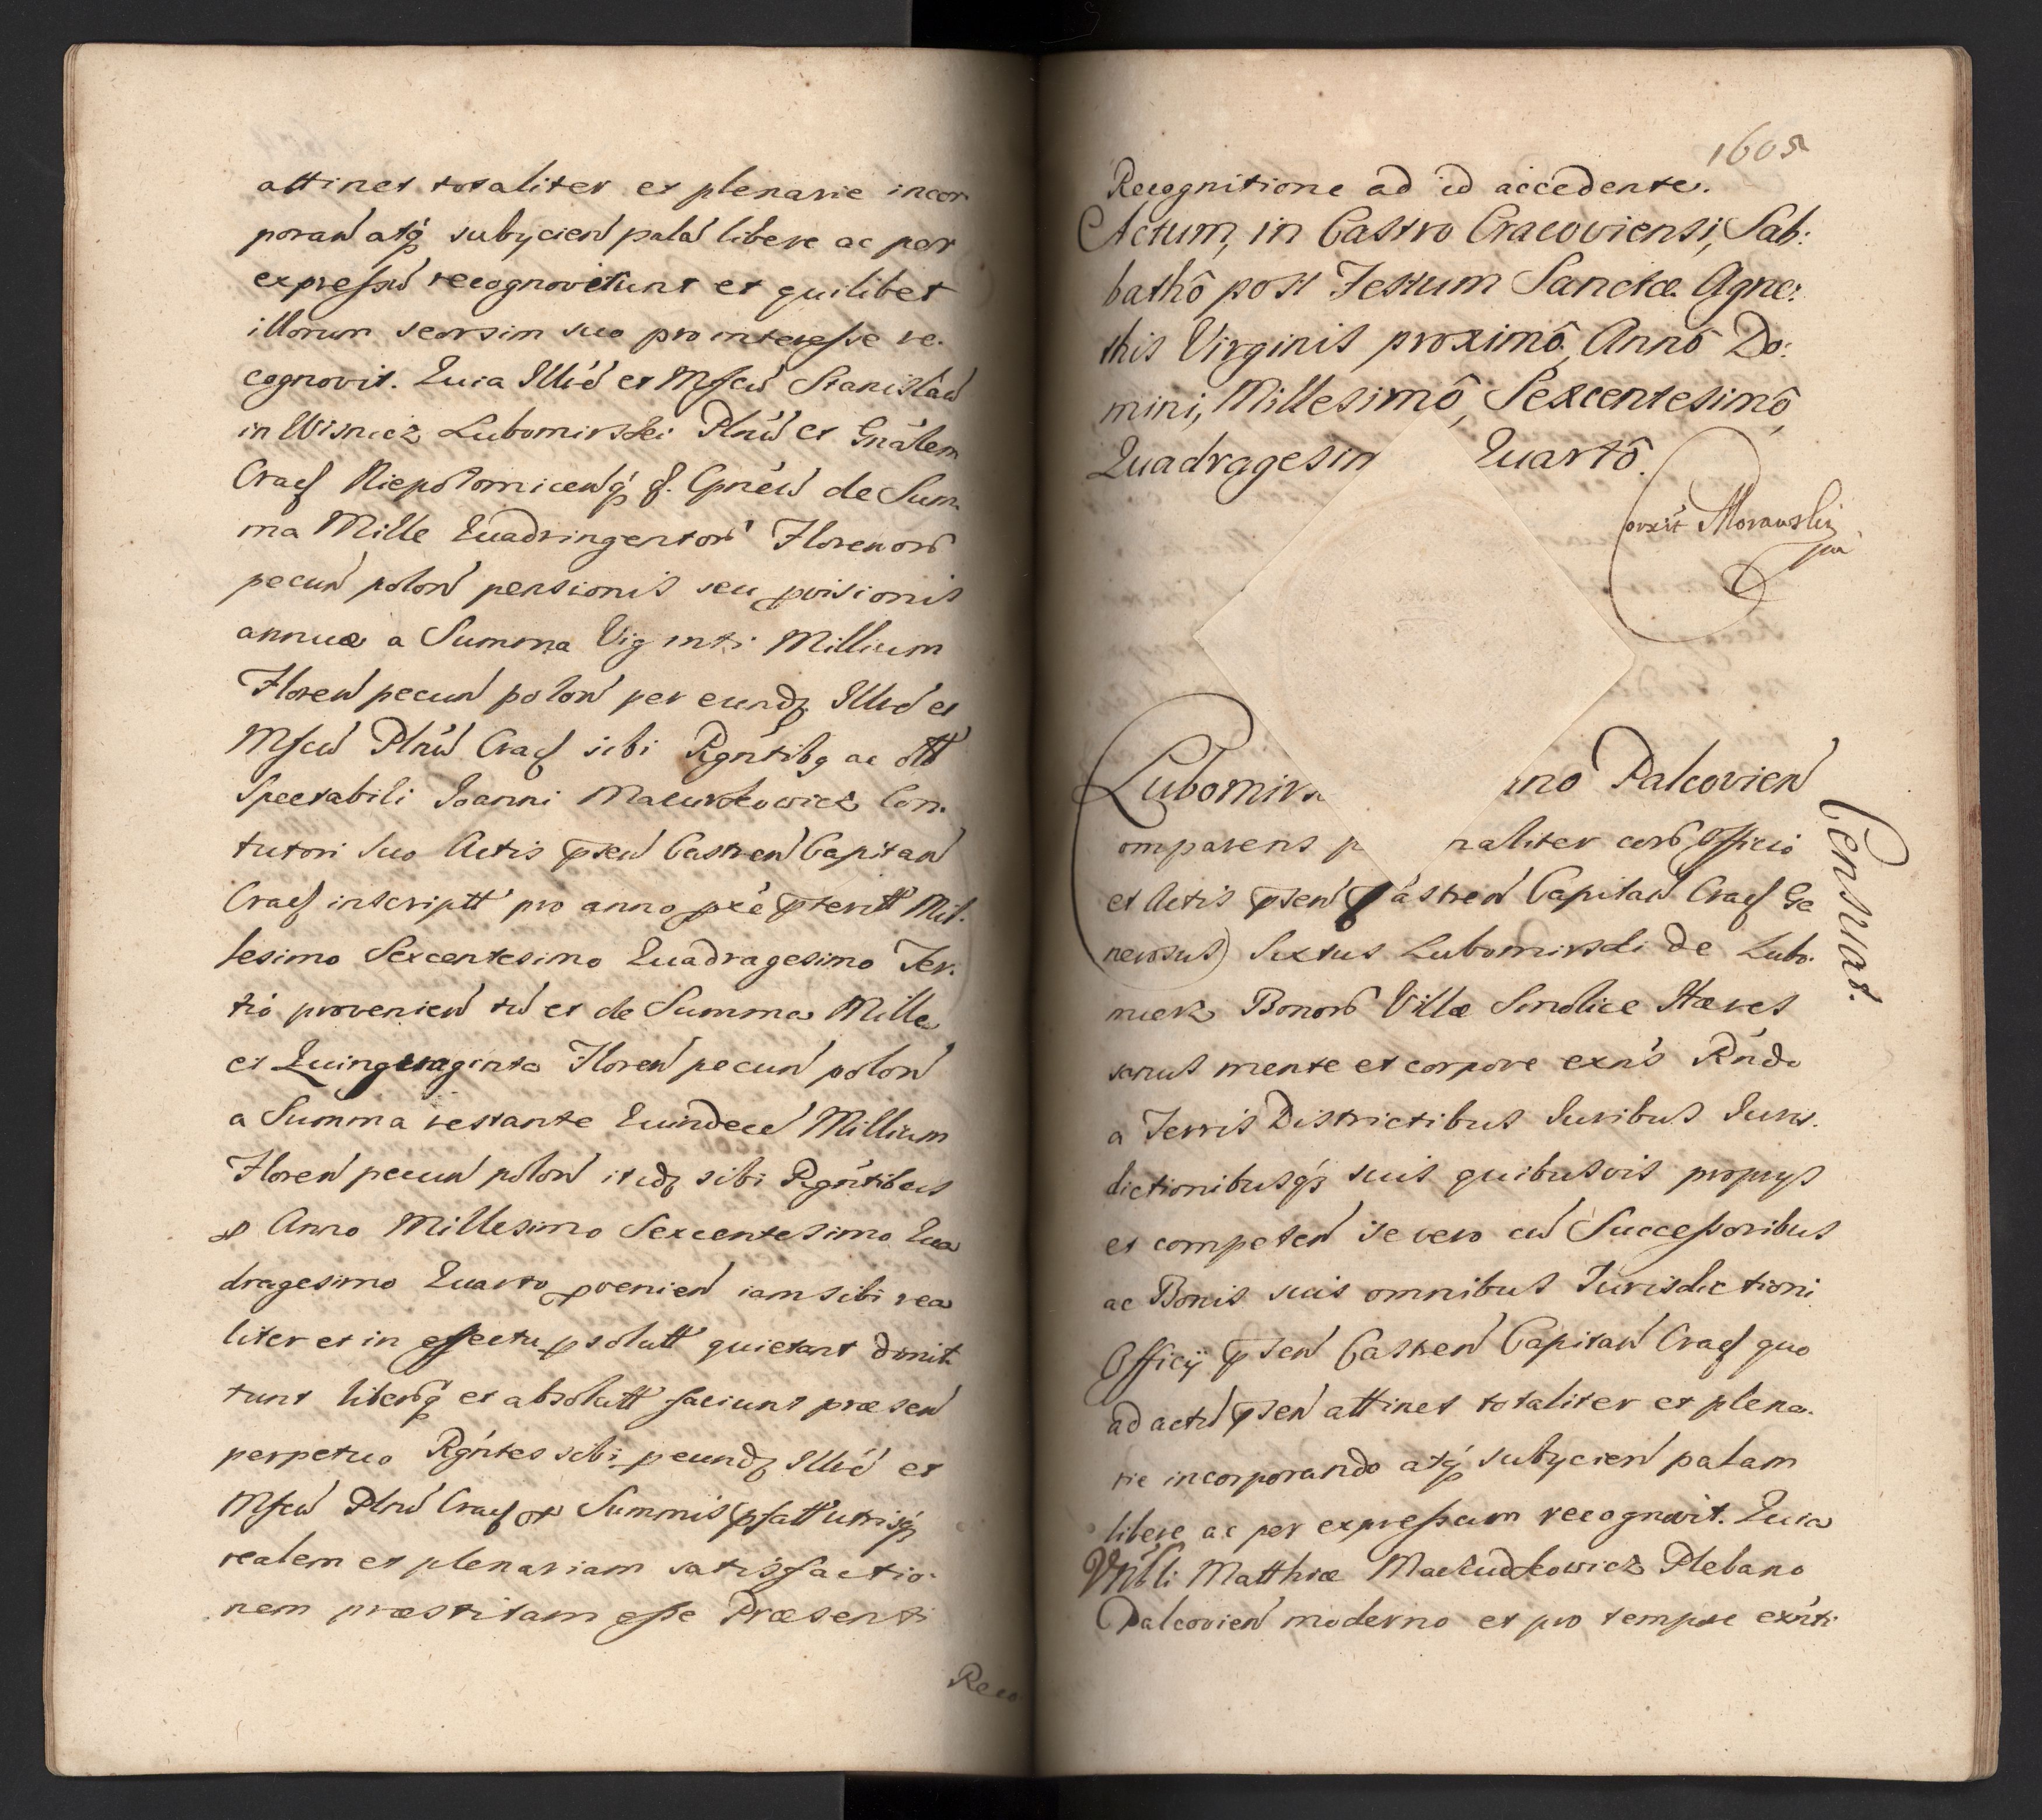 attinet totaliter et plenarie incor
poran atq̃ subycien palã libere ac per
expressũ recognoverunt et quilibet
illorum seorsim suo pro interesse re.
cognovit. Quia Illũ et Mfcũ Stanislaũ
in Wisnicz Lubomirski Pltnũ et Gnãlem
Cracȷ Niepolomicenq̃ Gnẽũ de Sum.
ma Mille Quadringentorũ Florenorũ
pecun polon pensionis seu pvisionis
annuæ a Summa Viginti Millium
Floren pecun polon per eundȝ Illũ et
Mfcũ Pltnũ Cracȷ sibi Rgntibȝ ac olĩ
Spectabili Joanni Maczudkowicz Con.
tutori suo Actis pten Castren Capitan
Cracȷ inscriptt pro anno pxe pterito Mil.
lesimo Sexcentesimo Quadragesimo Ter.
tio provenien tũ et de Summa Mille
et Quinquaginta Floren pecun polon
a Summa restante Quindeci Millium
Floren pecun polon itidȝ sibi Rgntibus
Anno Millesimo Sexcentesimo Qua
dragesimo Quarto pvenien iam sibi rea
liter et in effectu psolutt quietant dimit.
tunt liberosq̃ et absolutt faciunt præsen
perpetuo Rgntes sibi p eundȝ Illũ et
Mfcũ Pltnũ Cracȷ Summis pfatt utrisq̃
realem et plenariam satisfactio.
nem præstitam esse Præsenti
Reco
1605
Recognitione ad id accedente.
Actum, in Castro Cracoviensi, Sab:
bathô post Festum Sanctæ Agne:
this Virginis proximô, Annô Do:
mini, Millesimô, Sexcentesimô,
Quadragesim Quartô.
Morawski
Lubomirs ano Palcovien
Censuat.
omparens p naliter corã Officio
et Actis pten Castren Capitan Cracȷ Ge
nerosus Sixtus Lubomirski de Lubo.
mierz Bonorũ Villæ Smolice Hæres
sanus mente et corpore exns Rndo
a Terris Districtibus Juribus Juris.
dictionibusq̃ suis quibusvis proprys
et competen se vero cũ Successoribus
ac Bonis suis omnibus Jurisdictioni
Officij pten Castren Capitan Cracȷ quo
ad actũ pten attinet totaliter et plena.
rie incorporando atq̃ subycien palam
libere ac per expressum recognovit. Quia
Vnbli Matthiæ Maczudkowicz Plebano
Palcovien moderno et pro tempore exnti